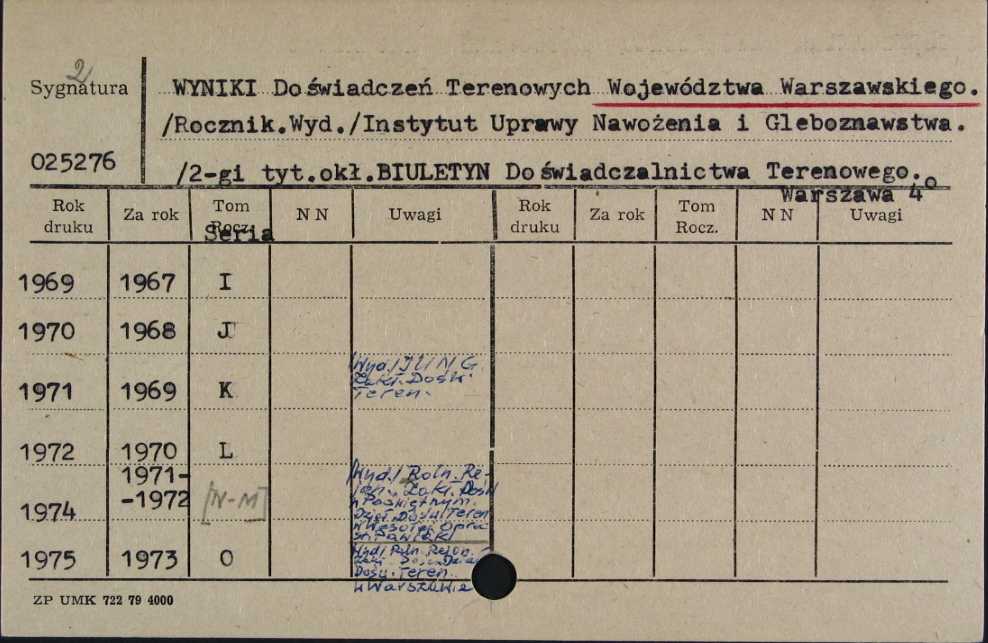 2
Sygnatura WYNIKI Doświadczeń Terenowych Województwa Warszawskiego.
/Rocznik.Wyd./Instytut Uprawy Nawożenia i Gleboznawstwa.
025276 /2-gi tyt.okł.BIULETYN Doświadczalnictwa Terenowego.
Warszawa 4°
Rok druku Za rok Tom Rocz. NN Uwagi Rok druku Za rok Tom Rocz. NN Uwagi
Seria
1969 1967 I
1970 1968 J
1971 1969 K
/Wyd./IUNG.
Zakł. Dośw.
Teren.
1972 1970 L
1974 1971-
-1972 [N-M]
/Wyd./ Roln. Re-
jon. Zakł. Dośw
w Poświętnym.
Teren
w Wesołej Opra
1975 1973 O
/Wyd/ Roln. Rejon.
Teren.
w Warszawie
ZP UMK 722 79 4000